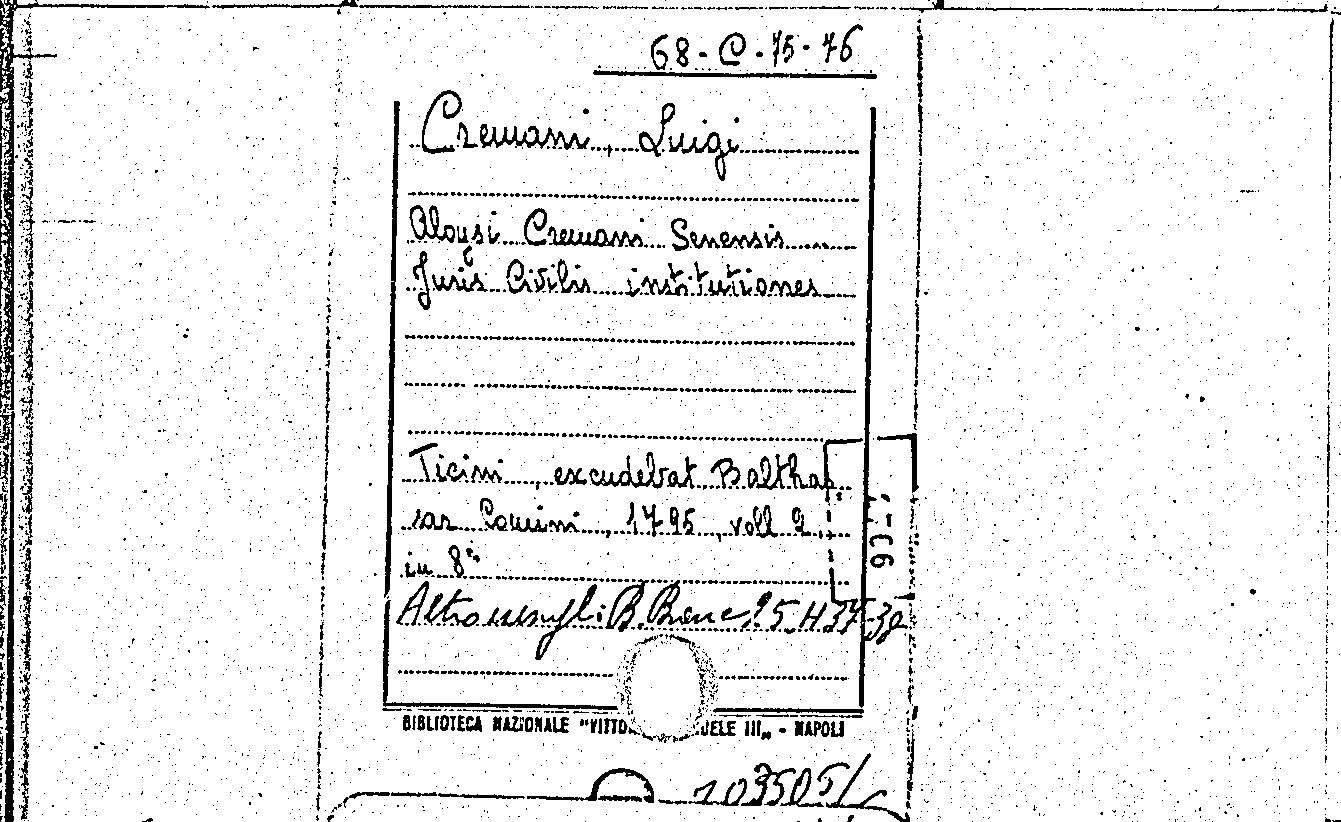 68-C-75-76
Cremani, Luigi
Aloysi Cremani Senensis....
Juris Civilis institutiones
Ticini, excudebat Balthas
sar Comini, 1795, voll 2,
in 8°
Altro B. Banc. 25. H 37-38
BIBLIOTECA NAZIONALE "VITTO UELE III„ - NAPOLI
103505/